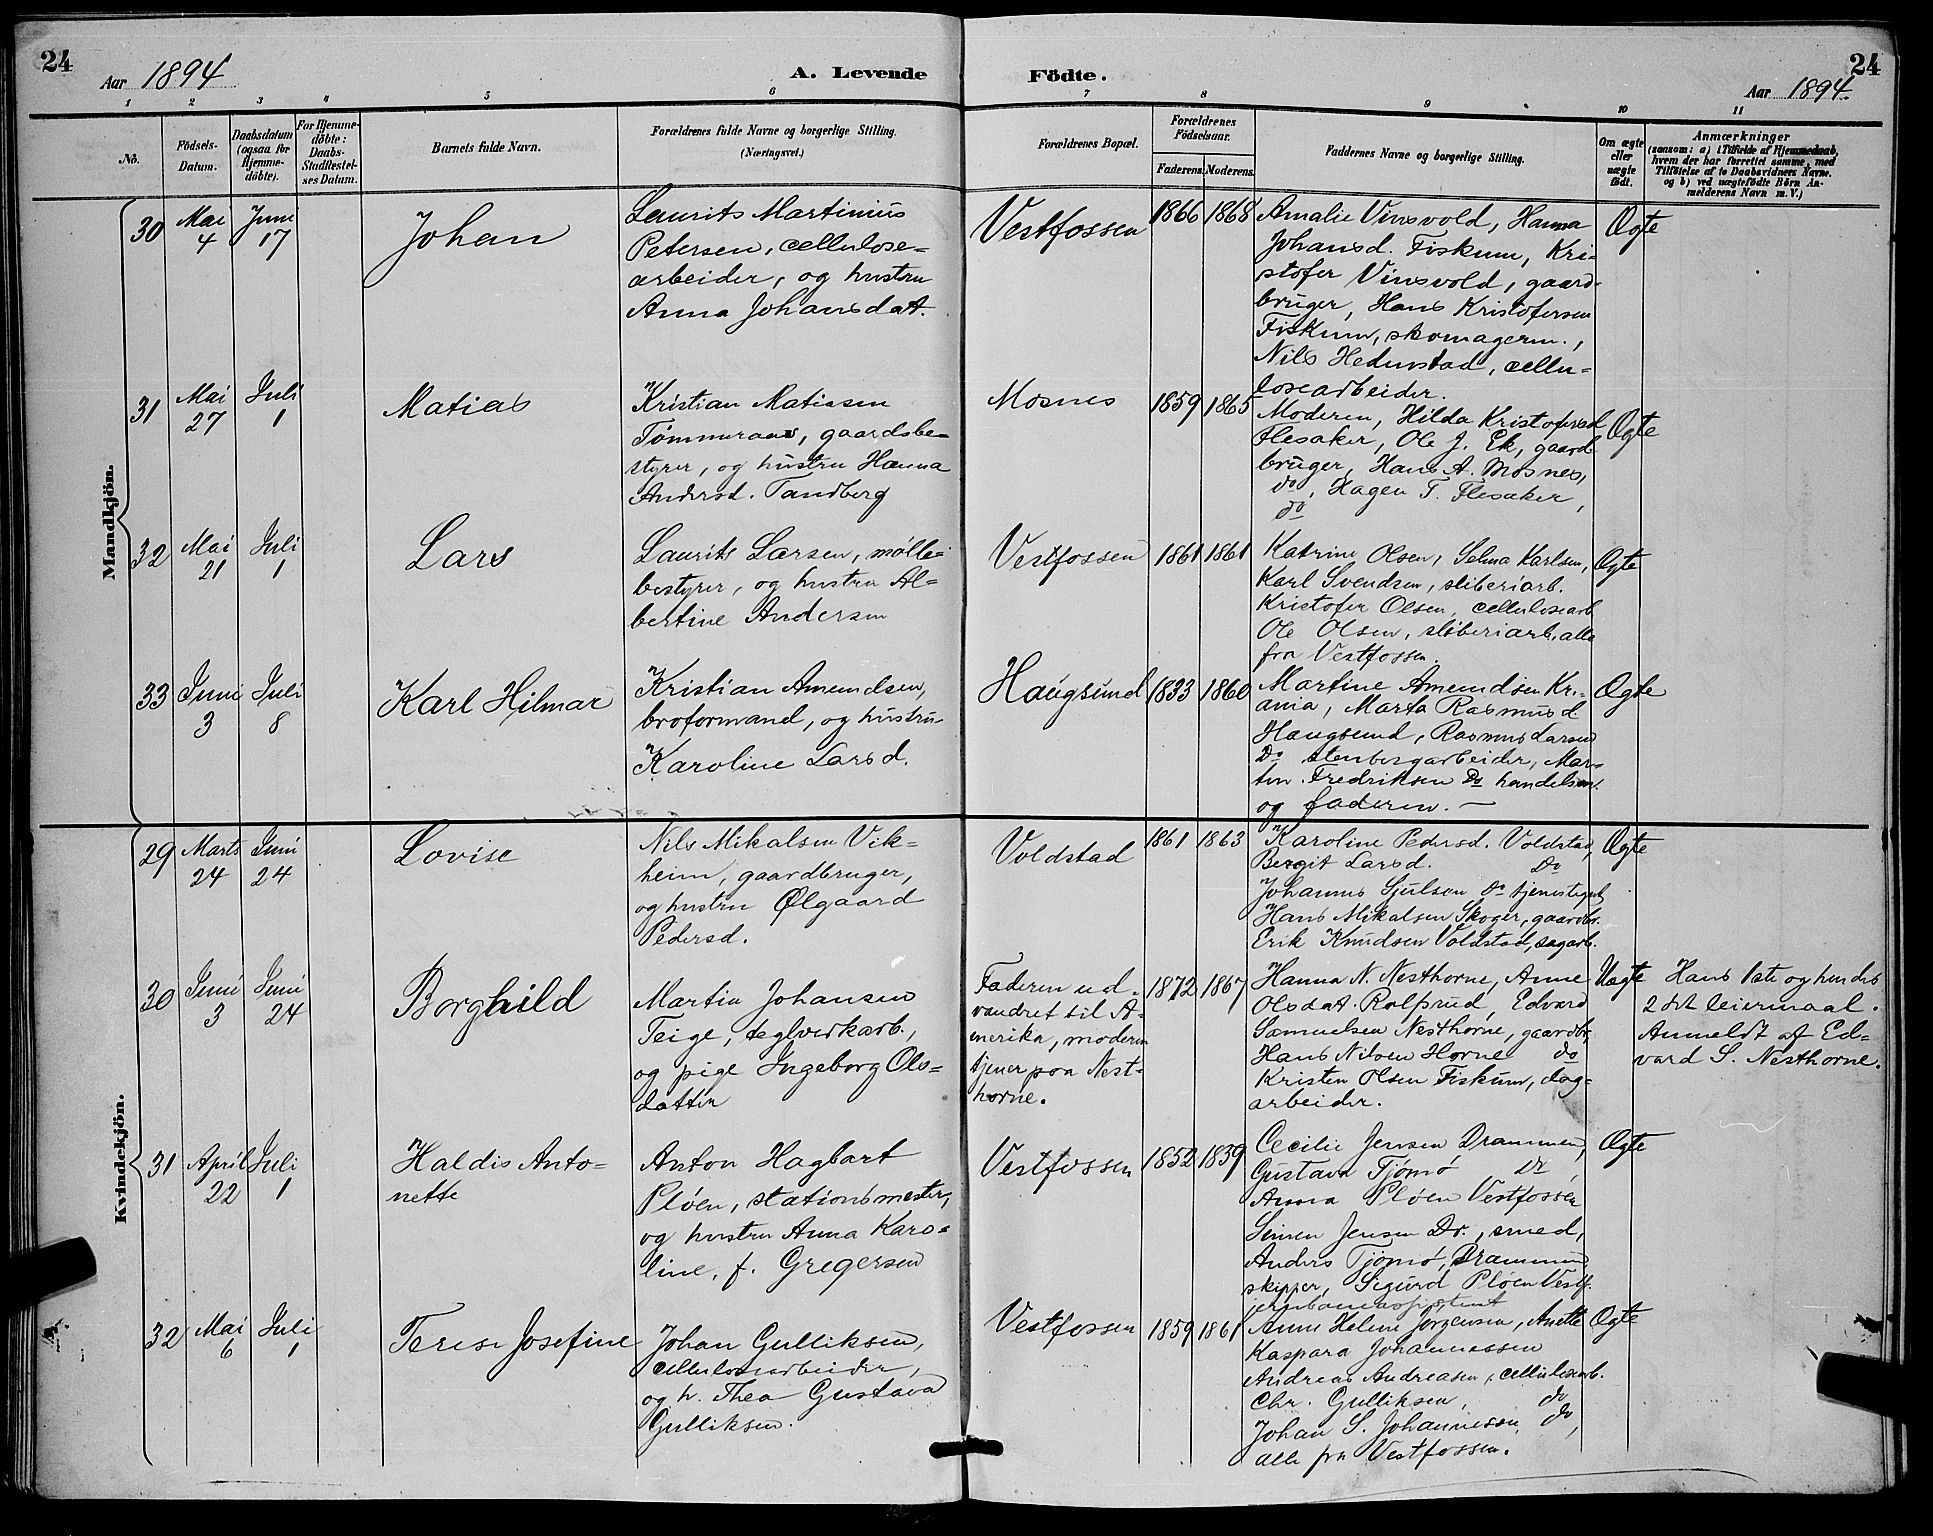 24
Aar 1894
A. Levende Födte.
Aar 1894.
24
1 2 3 4 5 6 7 8 9 10 11
No.
Födsels-Datum.
Daabsdatum (ogsaa for Hjemme-döbte).
For Hjemme-döbte: Daabs-Stadfæstel-ses Datum.
Barnets fulde Navn.
Forældrenes fulde Navne og borgerlige Stilling.
(Næringsvei.)
Forældrenes Bopæl.
Forældrenes Födselsaar.
Faderens. Moderens.
Faddernes Navne og borgerlige Stilling.
Om ægte eller uægte födt.
Anmærkninger
(saasom: a) i Tilfælde af Hjemmedaab,
hvem der har forrettet samme, med
Tilföielse af to Daabsvidners Navne.
og b) ved uægtefödte Börn An-
melderens Navn m. V.)
Mandkjön.
30
Mai 4
Juni 17
Johan
Laurits Martinius
Petersen, cellulose-
arbeider, og hustru
Anna Johansdat.
Vestfossen
1866 1868
Amalie Vinsvold, Hanna
Johansd. Fiskum, Kri-
stofer Vinsvold, gaard-
bruger, Hans Kristofersen
Fiskum, skomagerm.,
Nils Hedenstad, cellu-
losearbeider.
Ægte
31
Mai 27
Juli 1
Matias
Kristian Matiasen
Tømmeraas, gaardsbe-
styrer, og hustru Hanna
Andersd. Tandberg
Mosnes
1859 1865
Moderen, Hilda Kristofersd
Flesaker, Ole J. Ek, gaard
bruger, Hans A. Mosnes,
do, Hagen T. Flesaker,
do
Ægte
32
Mai 21
Juli 1
Lars
Laurits Larsen, mølle-
bestyrer, og hustru Al-
bertine Andersen
Vestfossen
1861 1861
Katrine Olsen, Selma Karlsen,
Karl Svendsen, sliberiarb.
Kristofer Olsen, cellulosearb
Ole Olsen, sliberiarb, alle
fra Vestfossen.
Ægte
33
Juni 3
Juli 8
Karl Hilmar
Kristian Amundsen,
broformand, og hustru
Karoline Larsd.
Haugsund
1833 1860
Martine Amundsen Kri-
ania, Marta Rasmusd
Haugsund, Rasmus Larsen
Do stenbergarbeider, Mar-
tin Fredriksen Do handelsm.
og faderen. —
Ægte
Kvindekjön.
29
Marts 24
Juni 24
Lovise
Nils Mikalsen Vik-
heim, gaardbruger,
og hustru Ølgaard
Pedersd.
Voldstad
1861 1863
Karoline Pedersd. Voldstad,
Bergit Larsd. Do
Johannes Gjulsen do tjenestegut
Hans Mikalsen Skoger, gaardbr.
Erik Knudsen Voldstad, sagarb.
Ægte
30
Juni 3
Juni 24
Borghild
Martin Johansen
Teige, teglverkarb.,
og pige Ingeborg Ols-
datter
Faderen ud-
vandret til A-
merika, moderen
tjener paa Nest-
horne.
1872 1867
Hanna N. Nesthorne, Anne
Olsdat. Rolfsrud, Edvard
Samuelsen Nesthorne, gaardbr,
Hans Nilsen Horne do
Kristen Olsen Fiskum, dag-
arbeider.
Uægte
Hans 1ste og hendes
2det leiermaal.
Anmeldt af Ed-
vard S. Nesthorne.
31
April 22
Juli 1
Haldis Anto-
nette
Anton Hagbart
Pløen, stationsmester,
og hustru Anna Karo-
line, f. Gregersen
Vestfossen
1852 1839
Cecilie Jensen Drammen,
Gustava Tjømø Do,
Anna Pløen Vestfossen
Simen Jensen Dr., smed,
Anders Tjømø, Drammen
skipper, Sigurd Pløen Vestf.
jernbaneassistent
Ægte
32
Mai 6
Juli 1
Terese Josefine
Johan Gulliksen,
cellulosearbeider,
og h. Thea Gustava
Gulliksen.
Vestfossen
1859 1861
Anne Helene Jørgensen, Anette
Kaspara Johannessen
Andreas Andreasen, cellulosearb.
Chr. Gulliksen, do
Johan S. Johannessen, do,
alle fra Vestfossen.
Ægte